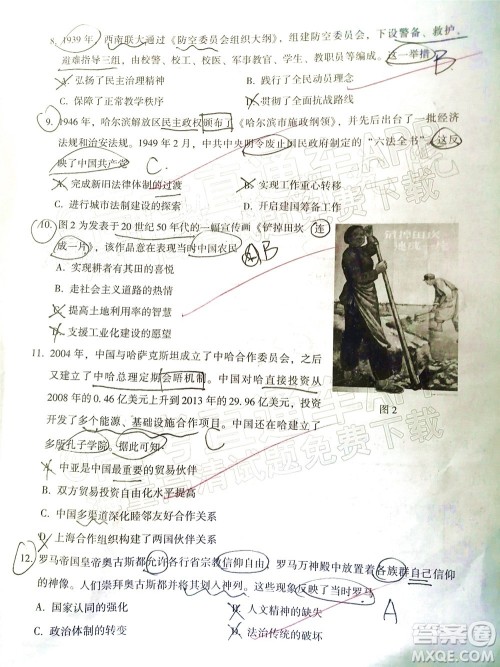 8. 1939 年，西南联大通过《防空委员会组织大纲》，组建防空委员会，下设警备、救护、
避难指导三组，由校警、校工、校医、军事教官、学生、教职员等编成。这一举措
B
A. 弘扬了民主治理精神 B. 践行了全民动员理念
C. 保障了正常教学秩序 D. 贯彻了全面抗战路线
9. 1946 年，哈尔滨解放区民主政权颁布了《哈尔滨市施政纲领》，并先后出台了一批经济
法规和治安法规。1949 年 2 月，中共中央明令废止国民政府制定的“六法全书”，这反
映了中国共产党
C
A. 完成新旧法律体制的过渡 B. 实现工作重心转移
C. 进行城市法制建设的探索 D. 开启建国筹备工作
10. 图 2 为发表于 20 世纪 50 年代的一幅宣传画《铲掉田坎 连
成一片》，该作品意在表现当时的中国农民
B
A. 实现耕者有其田的喜悦
B. 走社会主义道路的热情
C. 提高土地利用率的智慧
D. 支援工业化建设的愿望
图 2
11. 2004 年，中国与哈萨克斯坦成立了中哈合作委员会，之后
又建立了中哈总理定期会晤机制。中国对哈直接投资从
2008 年的 0.46 亿美元上升到 2013 年的 29.96 亿美元，并
开发了多个能源、基础设施合作项目。中国在哈建立了
多所孔子学院。据此可知
C
A. 中亚是中国最重要的贸易伙伴
B. 双方贸易投资自由化水平提高
C. 中国多渠道深化睦邻友好合作关系
D. 上海合作组织构建了两国合作关系
12. 罗马帝国皇帝奥古斯都允许各行省宗教信仰自由，罗马万神殿中放置着各族群自己信仰
的神像。人们崇拜奥古斯都并将其划入神列。这些现象反映了当时罗马
A
A. 国家认同的强化 B. 人文精神的缺失
C. 政治体制的转变 D. 法治传统的破坏
答案圈
MXQE.COM